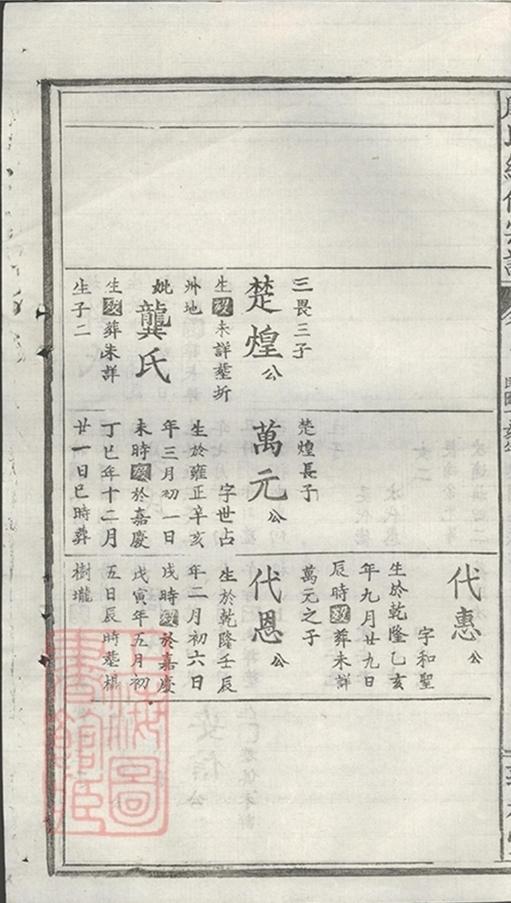 三畏三子
楚煌公
生歿未詳塟圻
州地
妣龔氏
生歿葬未詳
生子二
楚煌長子
萬元公
字世占
生於雍正辛亥
年三月初一日
未時歿於嘉慶
丁巳年十二月
廿一日巳時葬
樹壠
代惠公
字和聖
生於乾隆乙亥
年九月廿九日
辰時歿葬未詳
萬元之子
代恩公
生於乾隆壬辰
年二月初六日
戌時歿於嘉慶
戊寅年五月初
五日辰時塟楊
樹壠